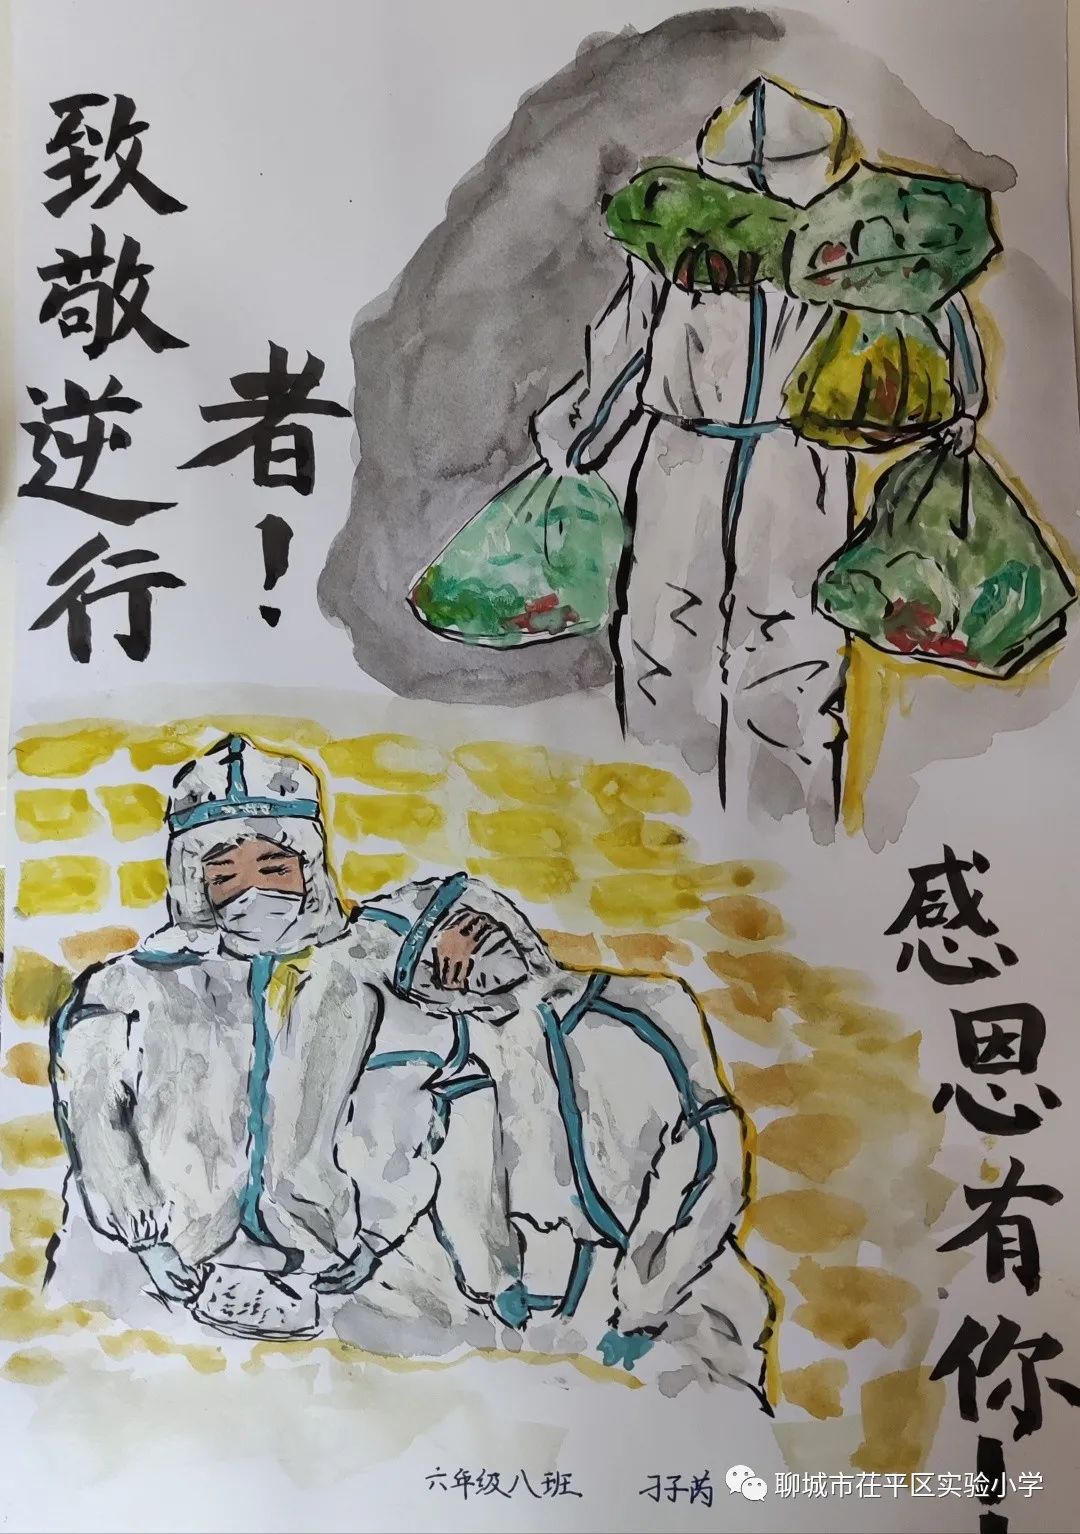 致敬逆行
者！
感恩有你！
六年级八班 刁子芮
聊城市茌平区实验小学